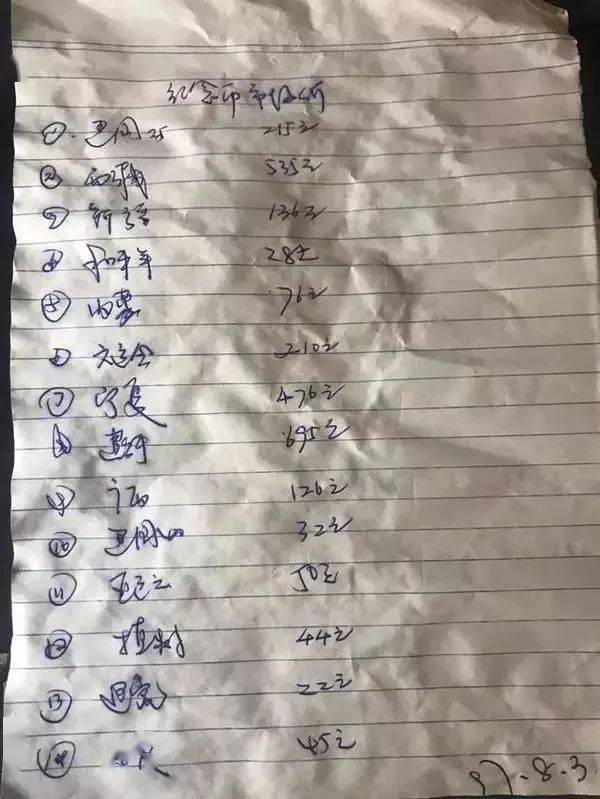 纪念币市场价
① 建国35 215元
② 西藏 535元
③ 新疆 136元
④ 和平年 28元
⑤ 内蒙 76元
⑥ 六运会 210元
⑦ 宁夏 476元
⑧ 建行 695元
⑨ 广西 126元
⑩ 建国40 32元
⑪ 亚运会 50元
⑫ 植树 44元
⑬ 22元
⑭ 45元
97.8.3